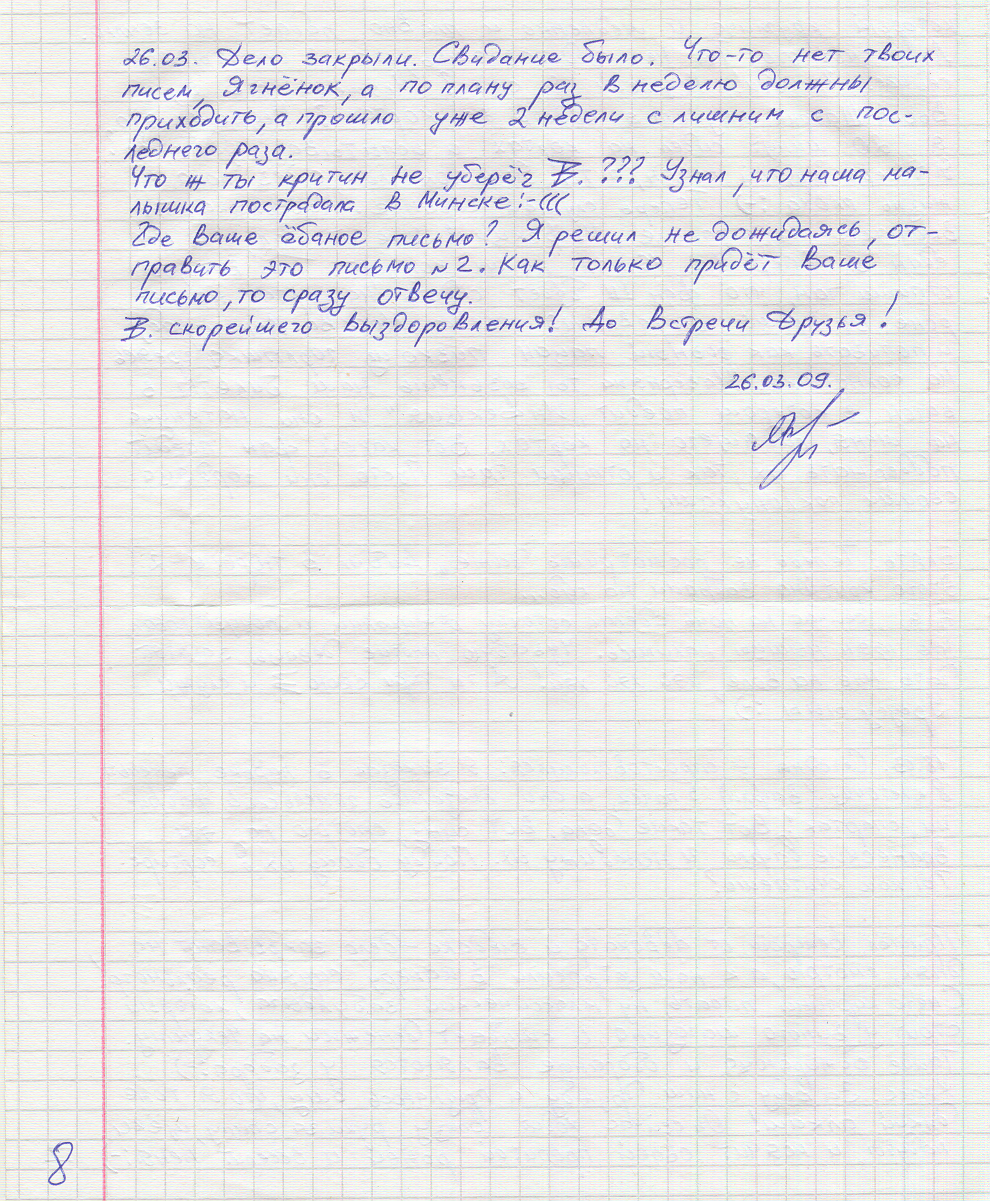 26.03. Дело закрыли. Свидание было. Что-то нет твоих
писем, Ягнёнок, а по плану раз в неделю должны
приходить, а прошло уже 2 недели с лишним с пос-
леднего раза.
Что ж ты критин не уберёг В. ??? Узнал, что наша ма-
лышка пострадала в Минске:-(((
Где Ваше ёбаное письмо? Я решил не дожидаясь, от-
править это письмо №2. Как только придёт Ваше
письмо, то сразу отвечу.
В. скорейшего выздоровления! До встречи Друзья!
26.03.09.
8